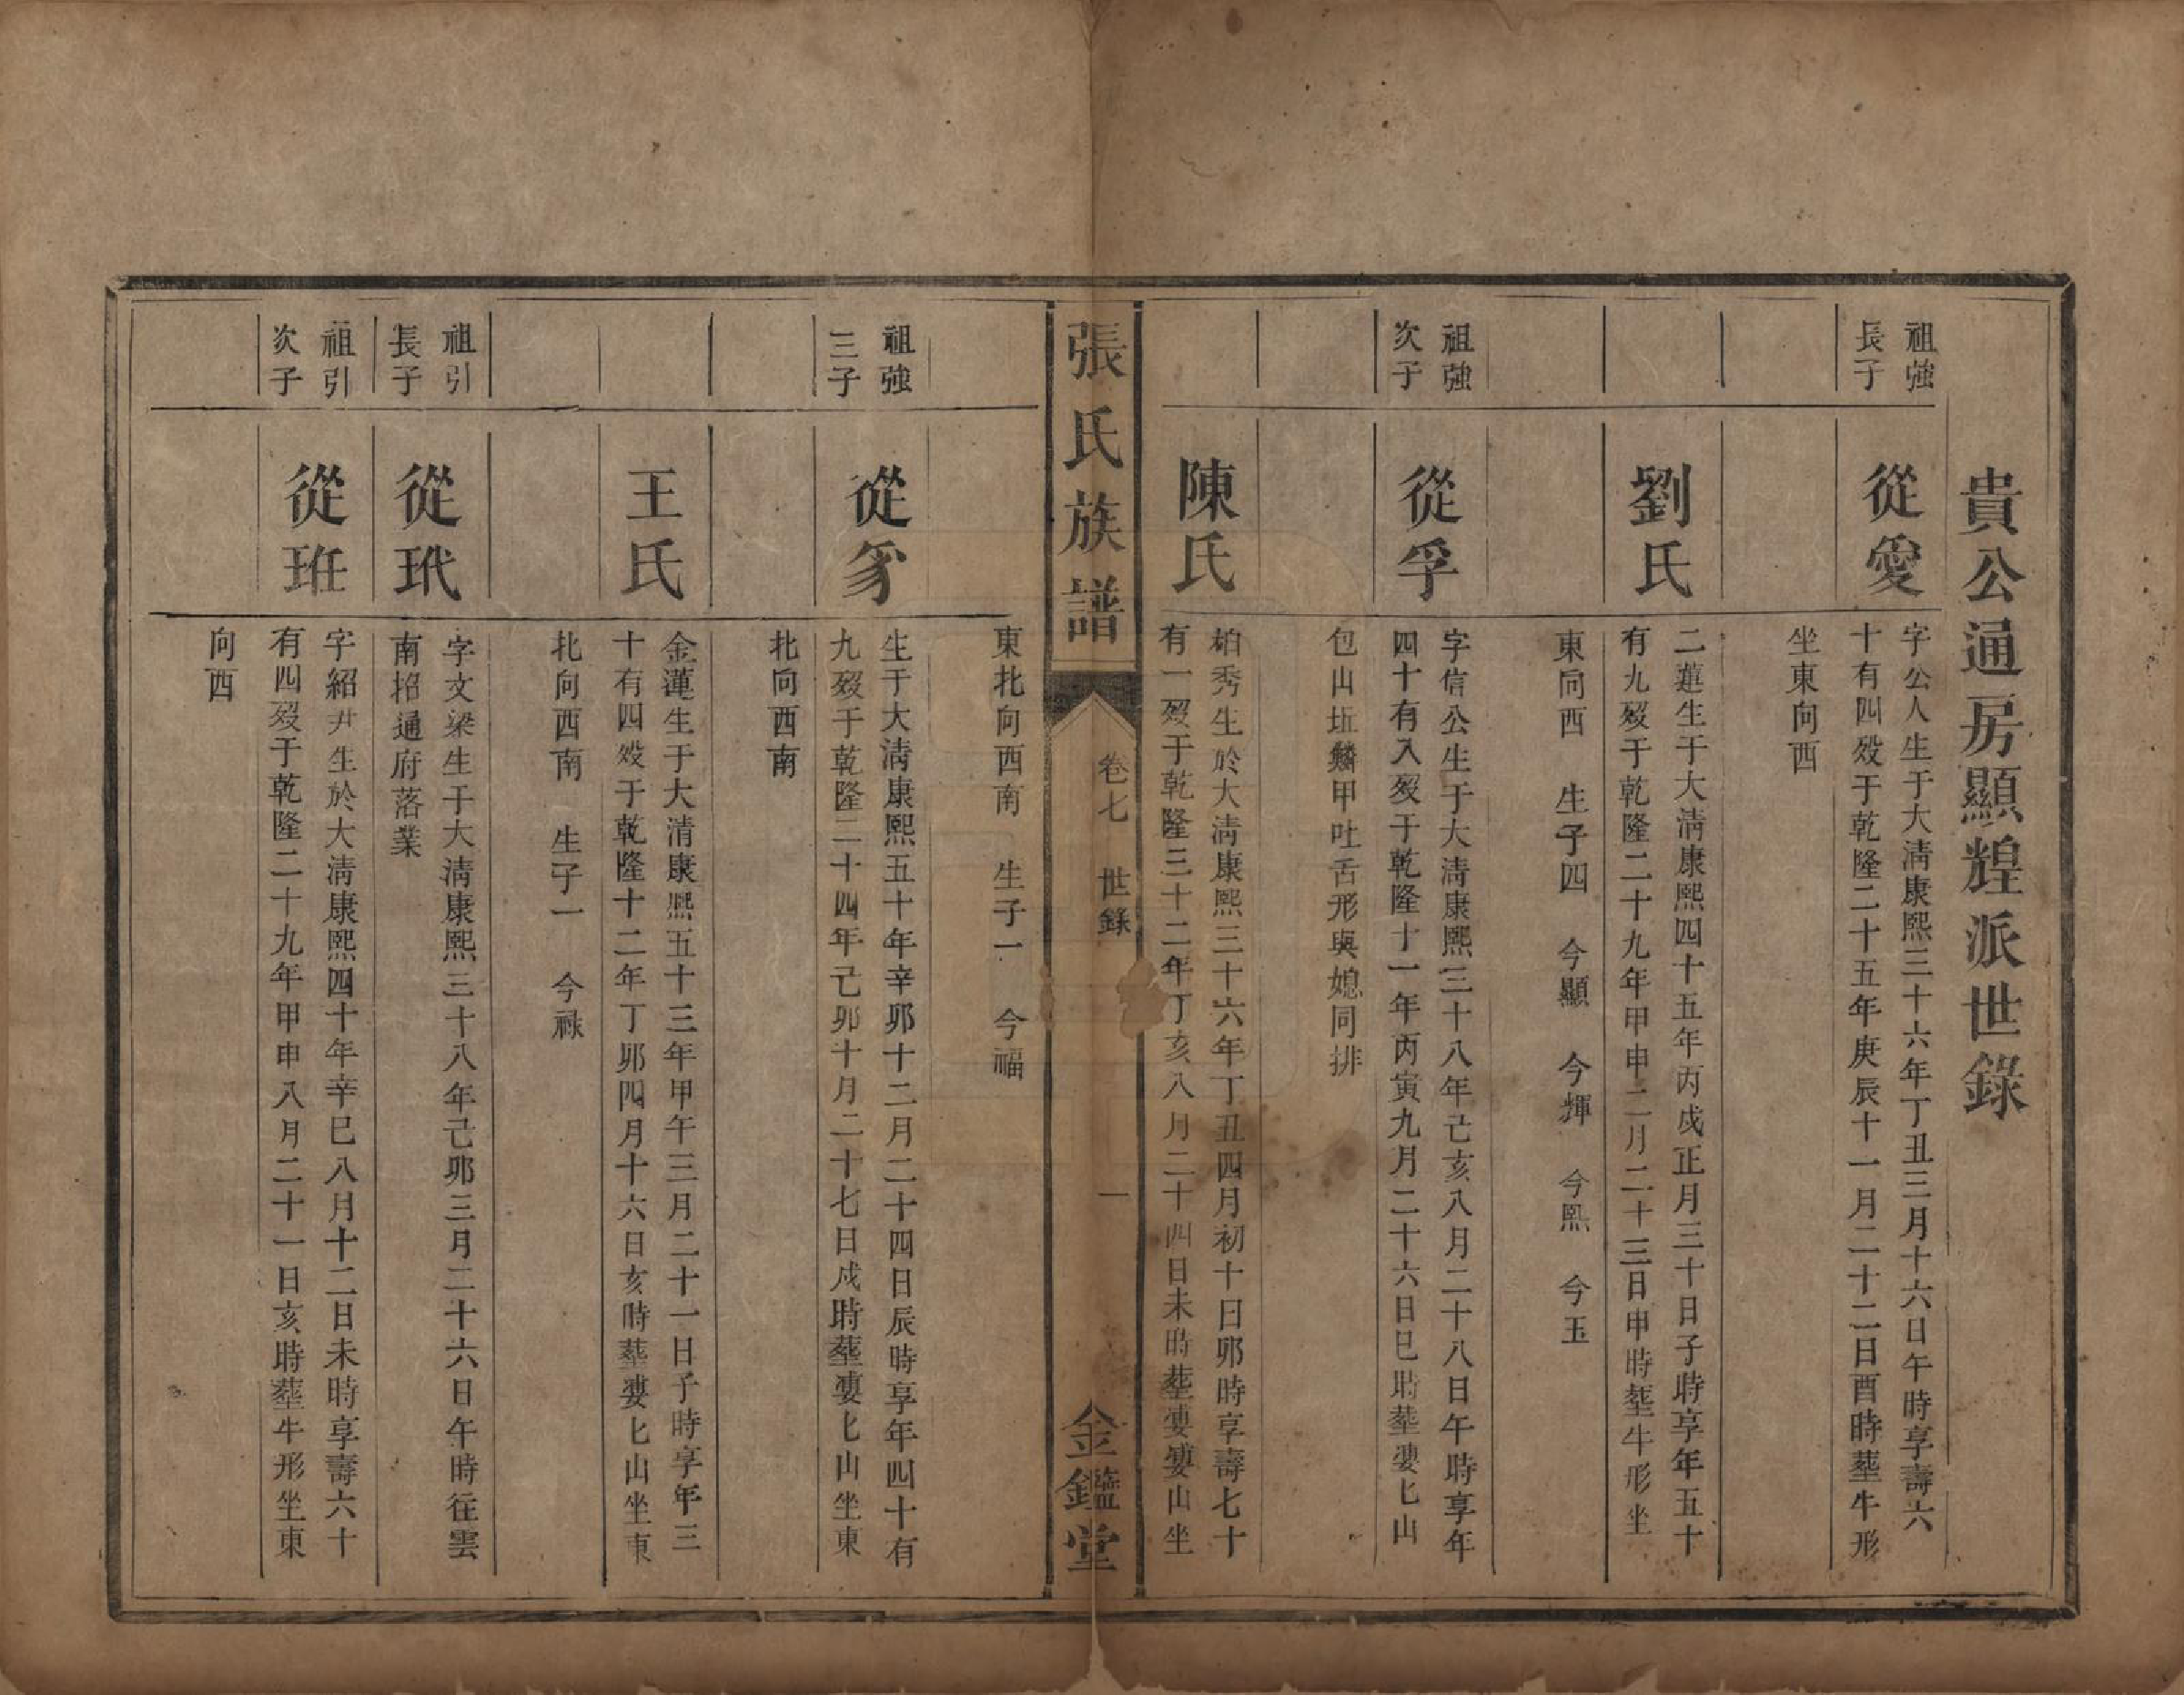 貴公通房顯煌派世錄
祖強
長子
從愛
字公人生于大淸康熙三十六年丁丑三月十六日午時享壽六
十有四歿于乾隆二十五年庚辰十一月二十二日酉時塟牛形
坐東向西
劉氏
二蓮生于大淸康熙四十五年丙戌正月三十日子時享年五十
有九歿于乾隆二十九年甲申二月二十三日申時塟牛形坐
東向西 生子四 今顯 今輝 今熙 今玉
祖強
次子
從孚
字信公生于大淸康熙三十八年己亥八月二十八日午時享年
四十有八歿于乾隆十一年丙寅九月二十六日巳時塟婁匕山
包山坵麟甲吐舌形與媳同排
陳氏
柏秀生於大淸康熙三十六年丁丑四月初十日卯時享壽七十
有一歿于乾隆三十二年丁亥八月二十四日未時塟婁婁山坐
張氏族譜
卷七 世錄
一
金鑑堂
東北向西南 生子一 今福
祖強
三子
從豸
生于大淸康熙五十年辛卯十二月二十四日辰時享年四十有
九歿于乾隆二十四年己卯十月二十七日戌時塟婁匕山坐東
北向西南
王氏
金蓮生于大清康熙五十三年甲午三月二十一日子時享年三
十有四歿于乾隆十二年丁卯四月十六日亥時塟婁匕山坐東
北向西南 生子一 今祿
祖引
長子
從玳
字文梁生于大淸康熙三十八年己卯三月二十六日午時往雲
南招通府落業
祖引
次子
從班
字紹尹生於大淸康熙四十年辛巳八月十二日未時享壽六十
有四歿于乾隆二十九年甲申八月二十一日亥時塟牛形坐東
向西